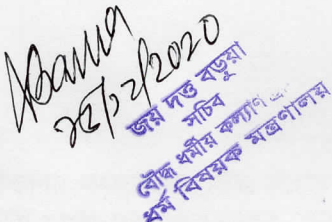 ২৮/১২/২০২০
জয় দত্ত বড়ুয়া
সচিব
বৌদ্ধ ধর্মীয় কল্যাণ
ধর্ম বিষয়ক মন্ত্রণালয়